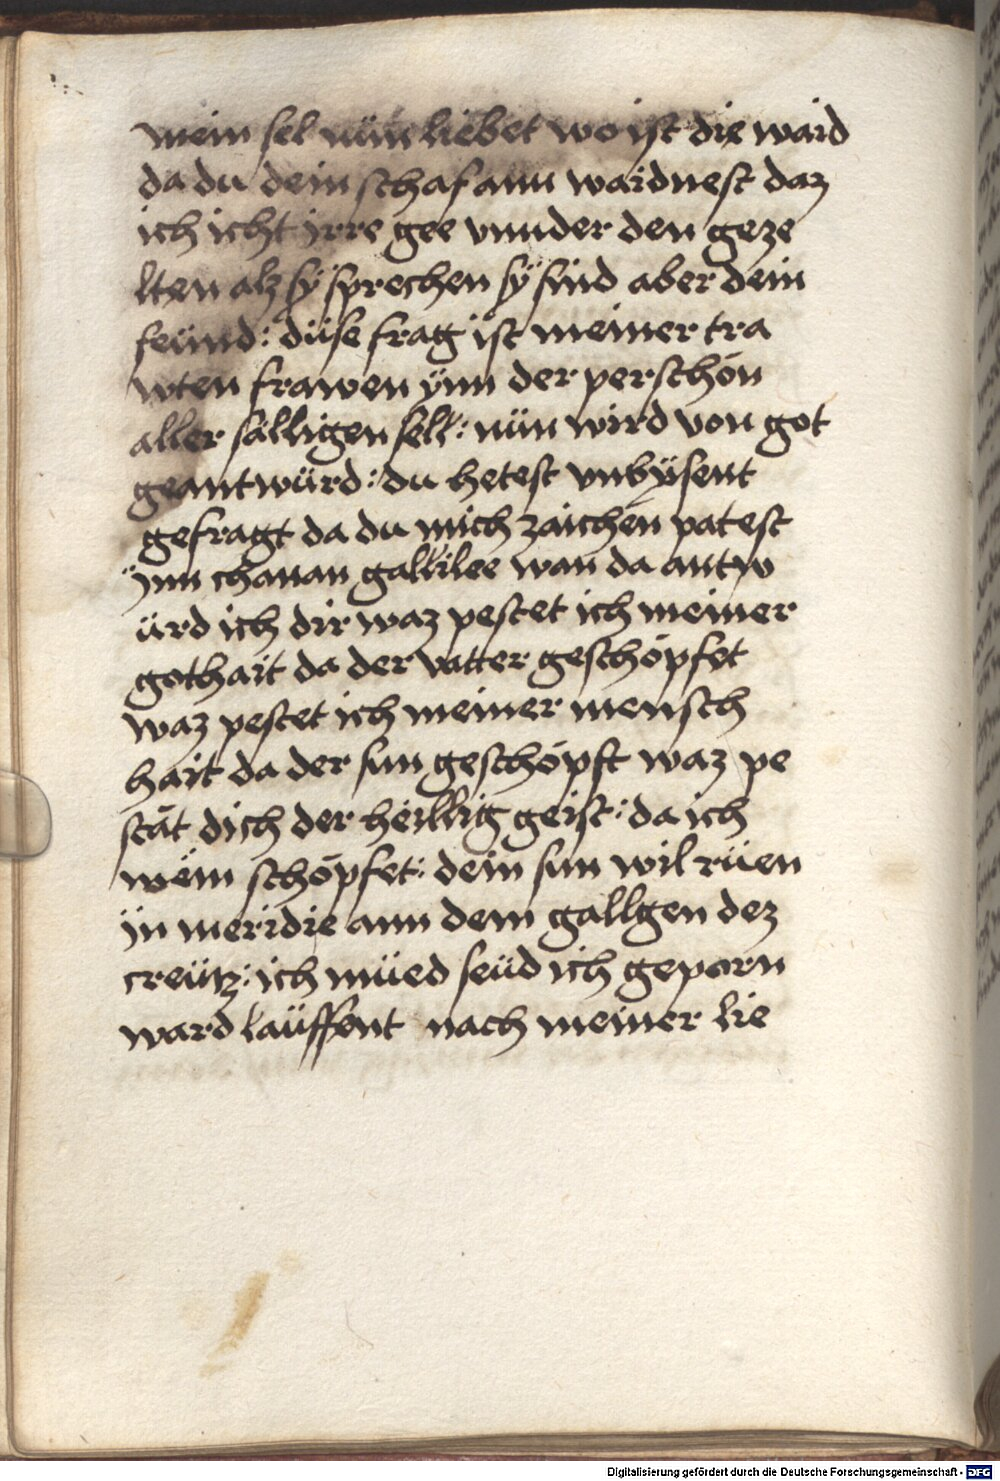 mein sel nün liebet wo ist die waid
da du dein schaf ann waidnest daz
ich icht jrre gee vnnder den geze
lten alz sÿ sprechen sÿ sind aber dein
feünd: düse frag ist meiner tra
wten frawen ÿnn der perschon
aller sälligen sell: nün wird von got
geantwürd: du hetest vnbÿsent
gefragt da du mich zaichen patest
ÿnn chanan gallilee wan da antw
ürd ich dir waz pestet ich meiner
gothait da der vatter geschöpfet
waz pestet ich meiner mensch
hait da der sun geschöpft waz pe
stät dich der heillig geist: da ich
wem schöpfet: dein sun wil rüen
jn meridie ann dem gallgen dez
creütz: ich müed seüd ich geporn
ward laüffent nach meiner lie
Digitalisierung gefördert durch die Deutsche Forschungsgemeinschaft - DFG